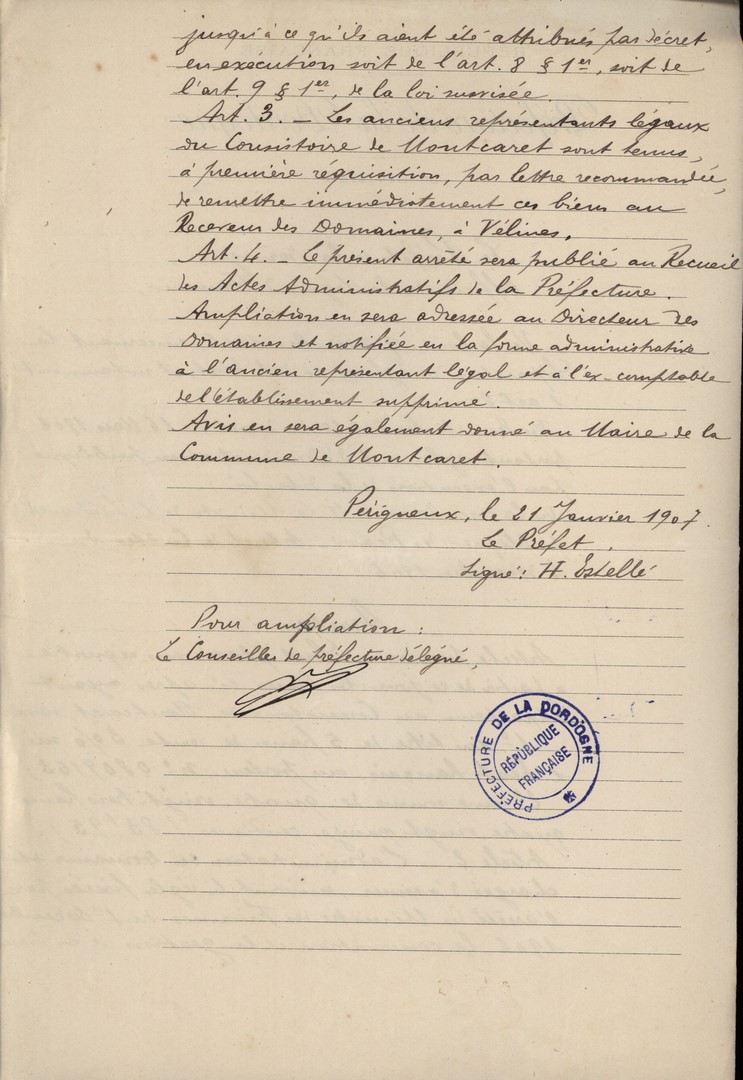 jusqu'à ce qu'ils aient été attribués par décret,
en exécution soit de l'art. 8 § 1er, soit de
l'art. 9 § 1er, de la loi susvisée.
Art. 3. – Les anciens représentants légaux
du Consistoire de Montcaret sont tenus,
à première réquisition, par lettre recommandée,
de remettre immédiatement ces biens au
Receveur des Domaines, à Vélines.
Art. 4. – Le présent arrêté sera publié au Recueil
des Actes Administratifs de la Préfecture.
Ampliation en sera adressée au Directeur des
Domaines et notifiée en la forme administrative
à l'ancien représentant légal et à l'ex-comptable
de l'établissement supprimé.
Avis en sera également donné au Maire de la
Commune de Montcaret.
Périgueux, le 21 Janvier 1907.
Le Préfet,
Signé: H. Estellé
Pour ampliation :
Le Conseiller de préfecture délégué,
PRÉFECTURE DE LA DORDOGNE
RÉPUBLIQUE
FRANÇAISE